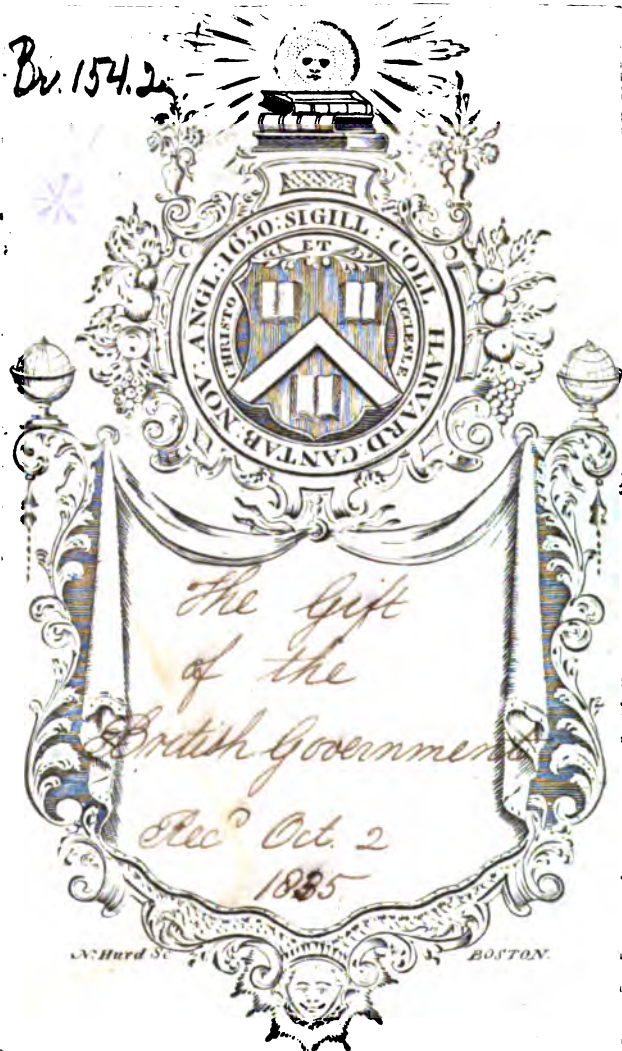 Br. 154.2
SIGILL: COLL HARVARD CANTAB: NOV. ANGL: 1650:
ET
CHRISTO
ECCLESIÆ
The Gift
of the
British Government
Recd Oct. 2
1835
N. Hurd Sc
BOSTON.